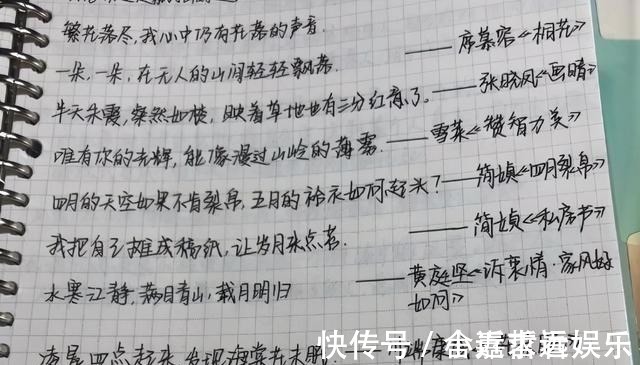 繁花落尽,我心中仍有花落的声音.
一朵,一朵,在无人的山间轻轻飘落. ——席慕容《桐花》
半天朱霞,粲然如焚,映着草地也有三分红意了。——张晓风《画晴》
唯有你的光辉,能像漫过山岭的薄雾. ——雪莱《赞智力美》
四月的天空如果不肯裂帛,五月的袷衣如何起头?——简媜《四月裂帛》
我把自己摊成稿纸,让岁月来点名. ——简媜《私房书》
水寒江静,满目青山,载月明归 ——黄庭坚《诉衷情·家风
如何》
凌晨四点起来 发现海棠花未眠.
快传号/